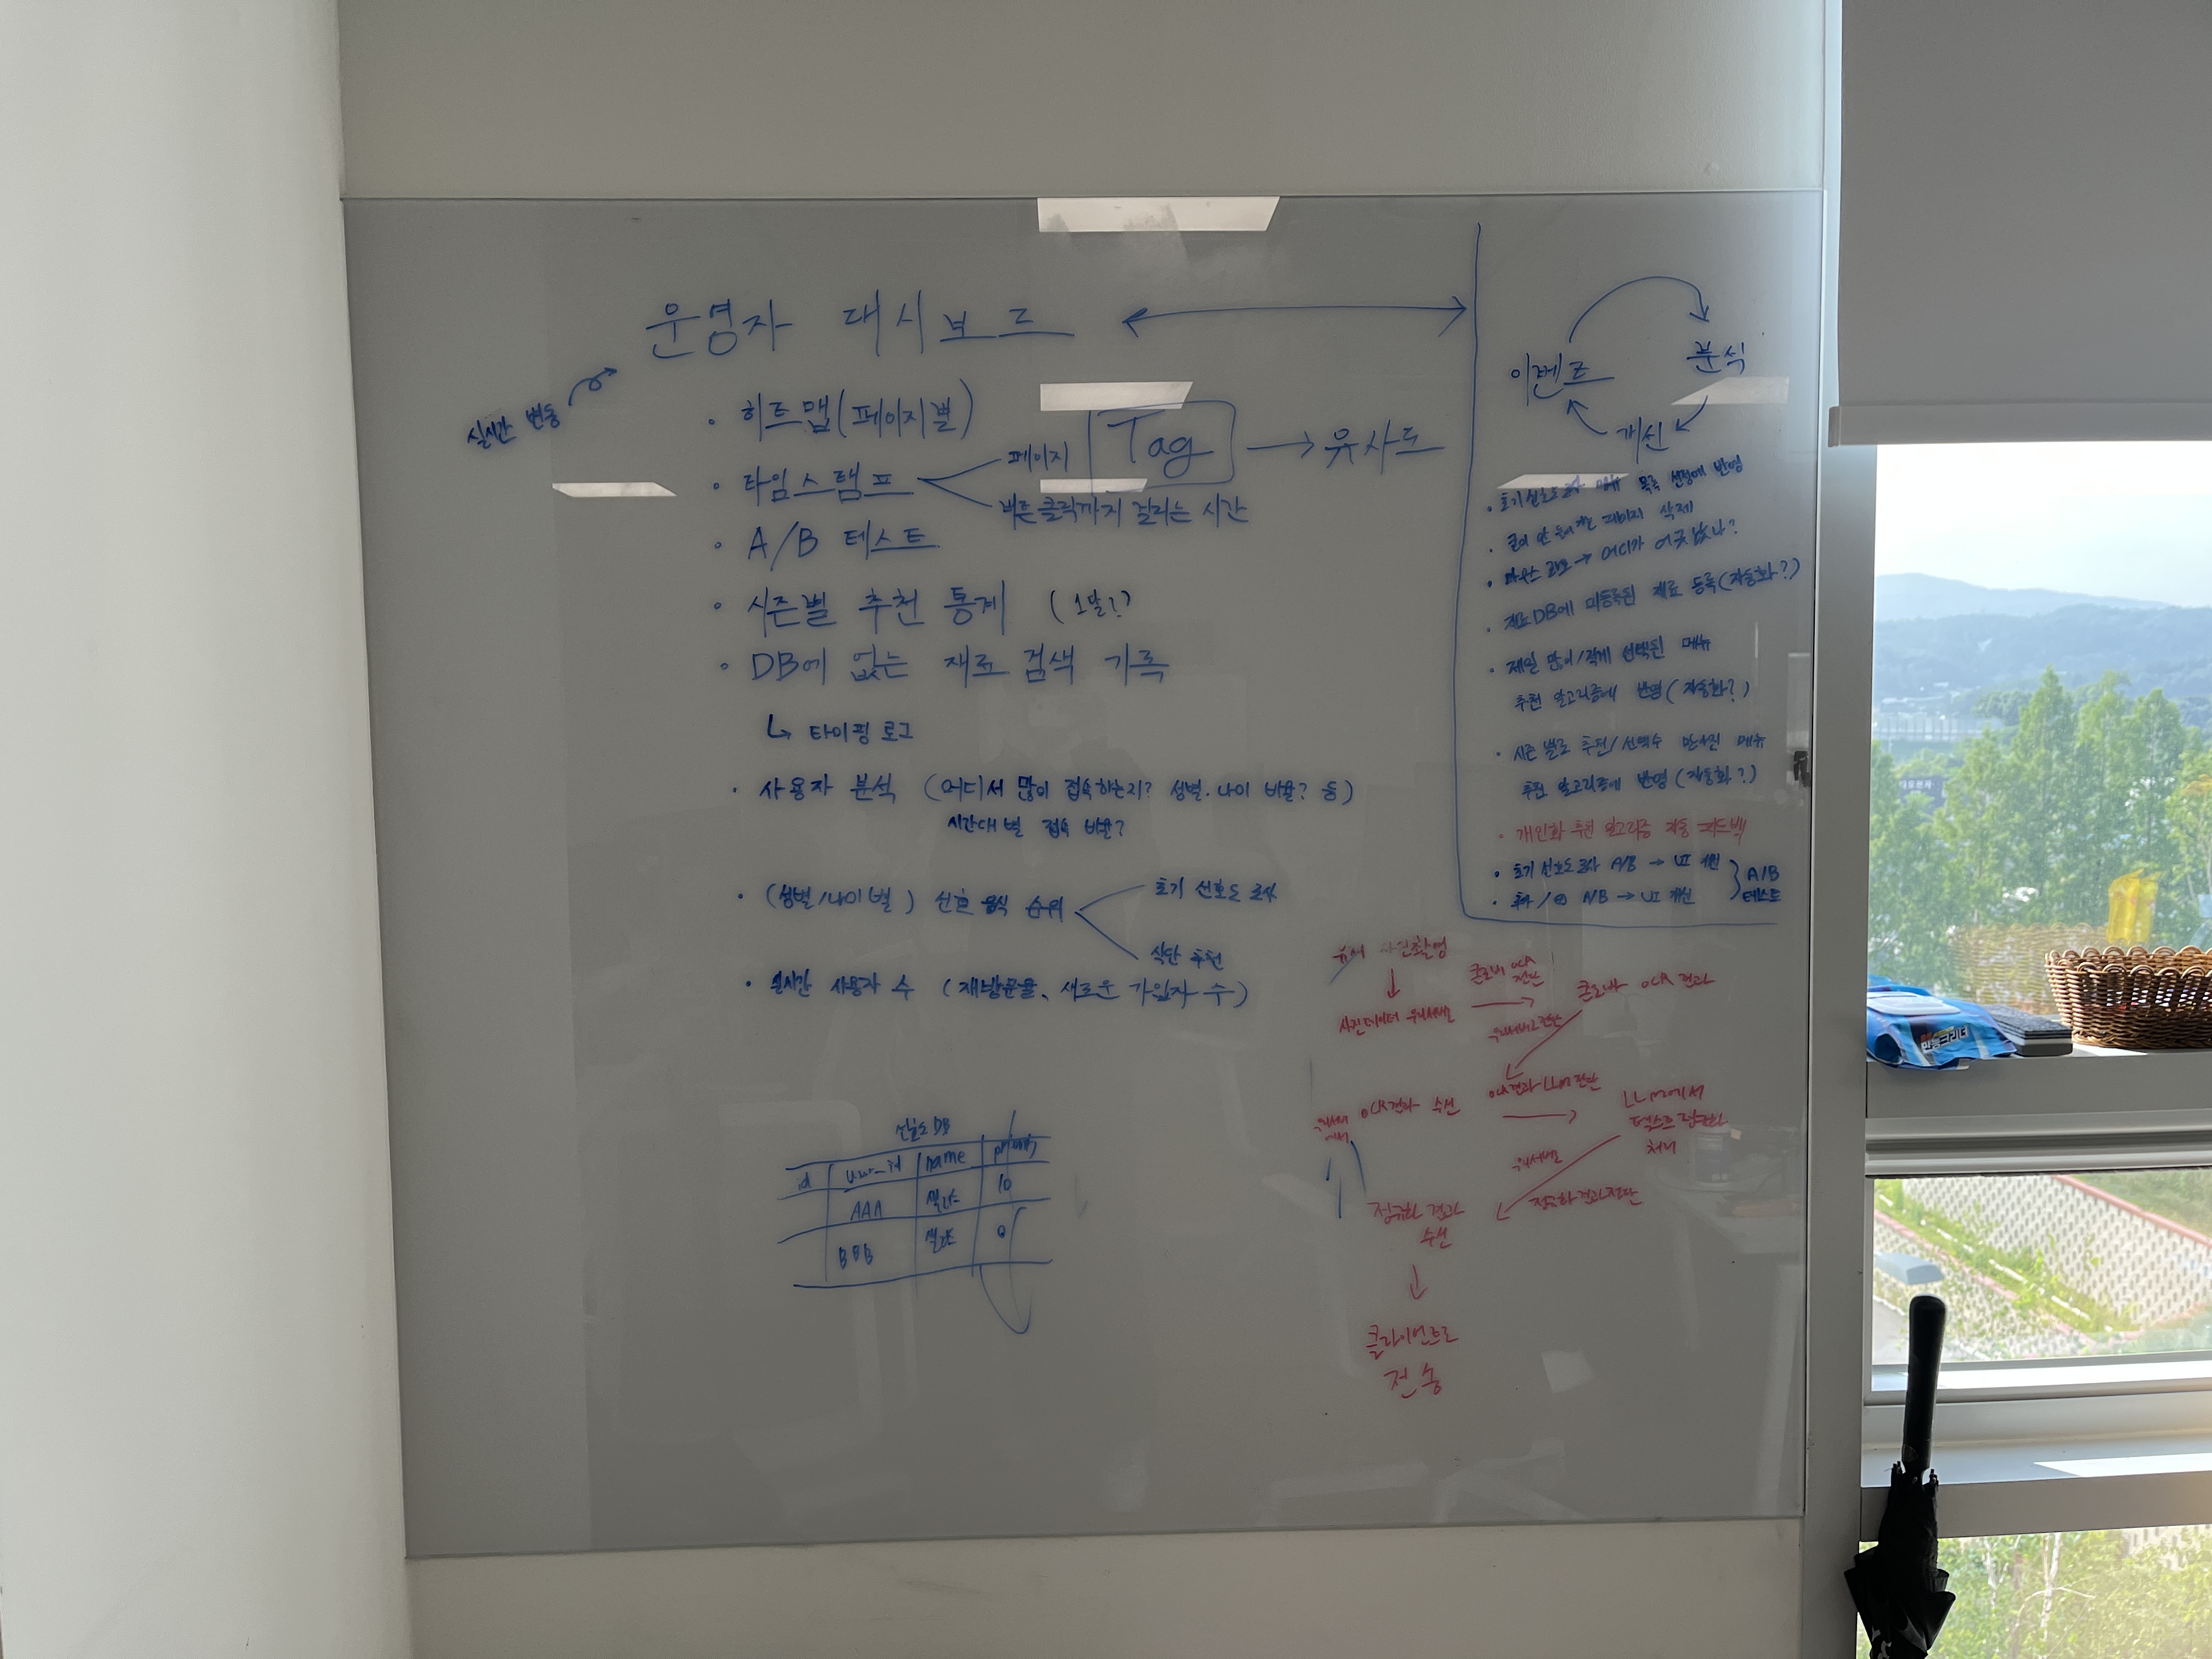 운영자 대시보드
실시간 변동
• 히트맵(페이지별)
• 타임스탬프
페이지
버튼클릭까지 걸리는 시간
Tag
유사도
• A/B 테스트
• 시즌별 추천 통계 (1달?)
• DB에 없는 재료 검색 기록
↳ 타이핑 로그
• 사용자 분석 (어디서 많이 접속하는지? 성별.나이 비율? 등)
시간대별 접속 비율?
• (성별/나이별) 선호 음식 순위
초기 선호도 조사
식단 추천
• 실시간 사용자 수 (재방문율, 새로운 가입자 수)
선호도 DB
id user_id name
AAA 샐러드 10
BBB 샐러드 0
이벤트
분석
개선
• 초기선호도조사 메뉴 목록 선정에 반영
페이지 삭제
→ 어디가 어긋났나?
• 재료DB에 미등록된 재료 등록(자동화?)
• 제일 많이/적게 선택된 메뉴
추천 알고리즘에 반영(자동화?)
• 시즌별로 추천/선택수 많아진 메뉴
추천 알고리즘에 반영(자동화?)
• 개인화 추천 알고리즘 자동 피드백
• 초기 선호도조사 A/B → UI 개선
A/B → UI 개선
A/B
테스트
유저 사진촬영
사진데이터 우리서버로
클로바 OCR
전달
클로바 OCR 결과
우리서버로 전달
우리서버
에서
OCR결과 수신
OCR결과 LLM 전달
LLM에서
텍스트 정규화
처리
우리서버로
정규화결과전달
정규화 결과
수신
클라이언트로
전송